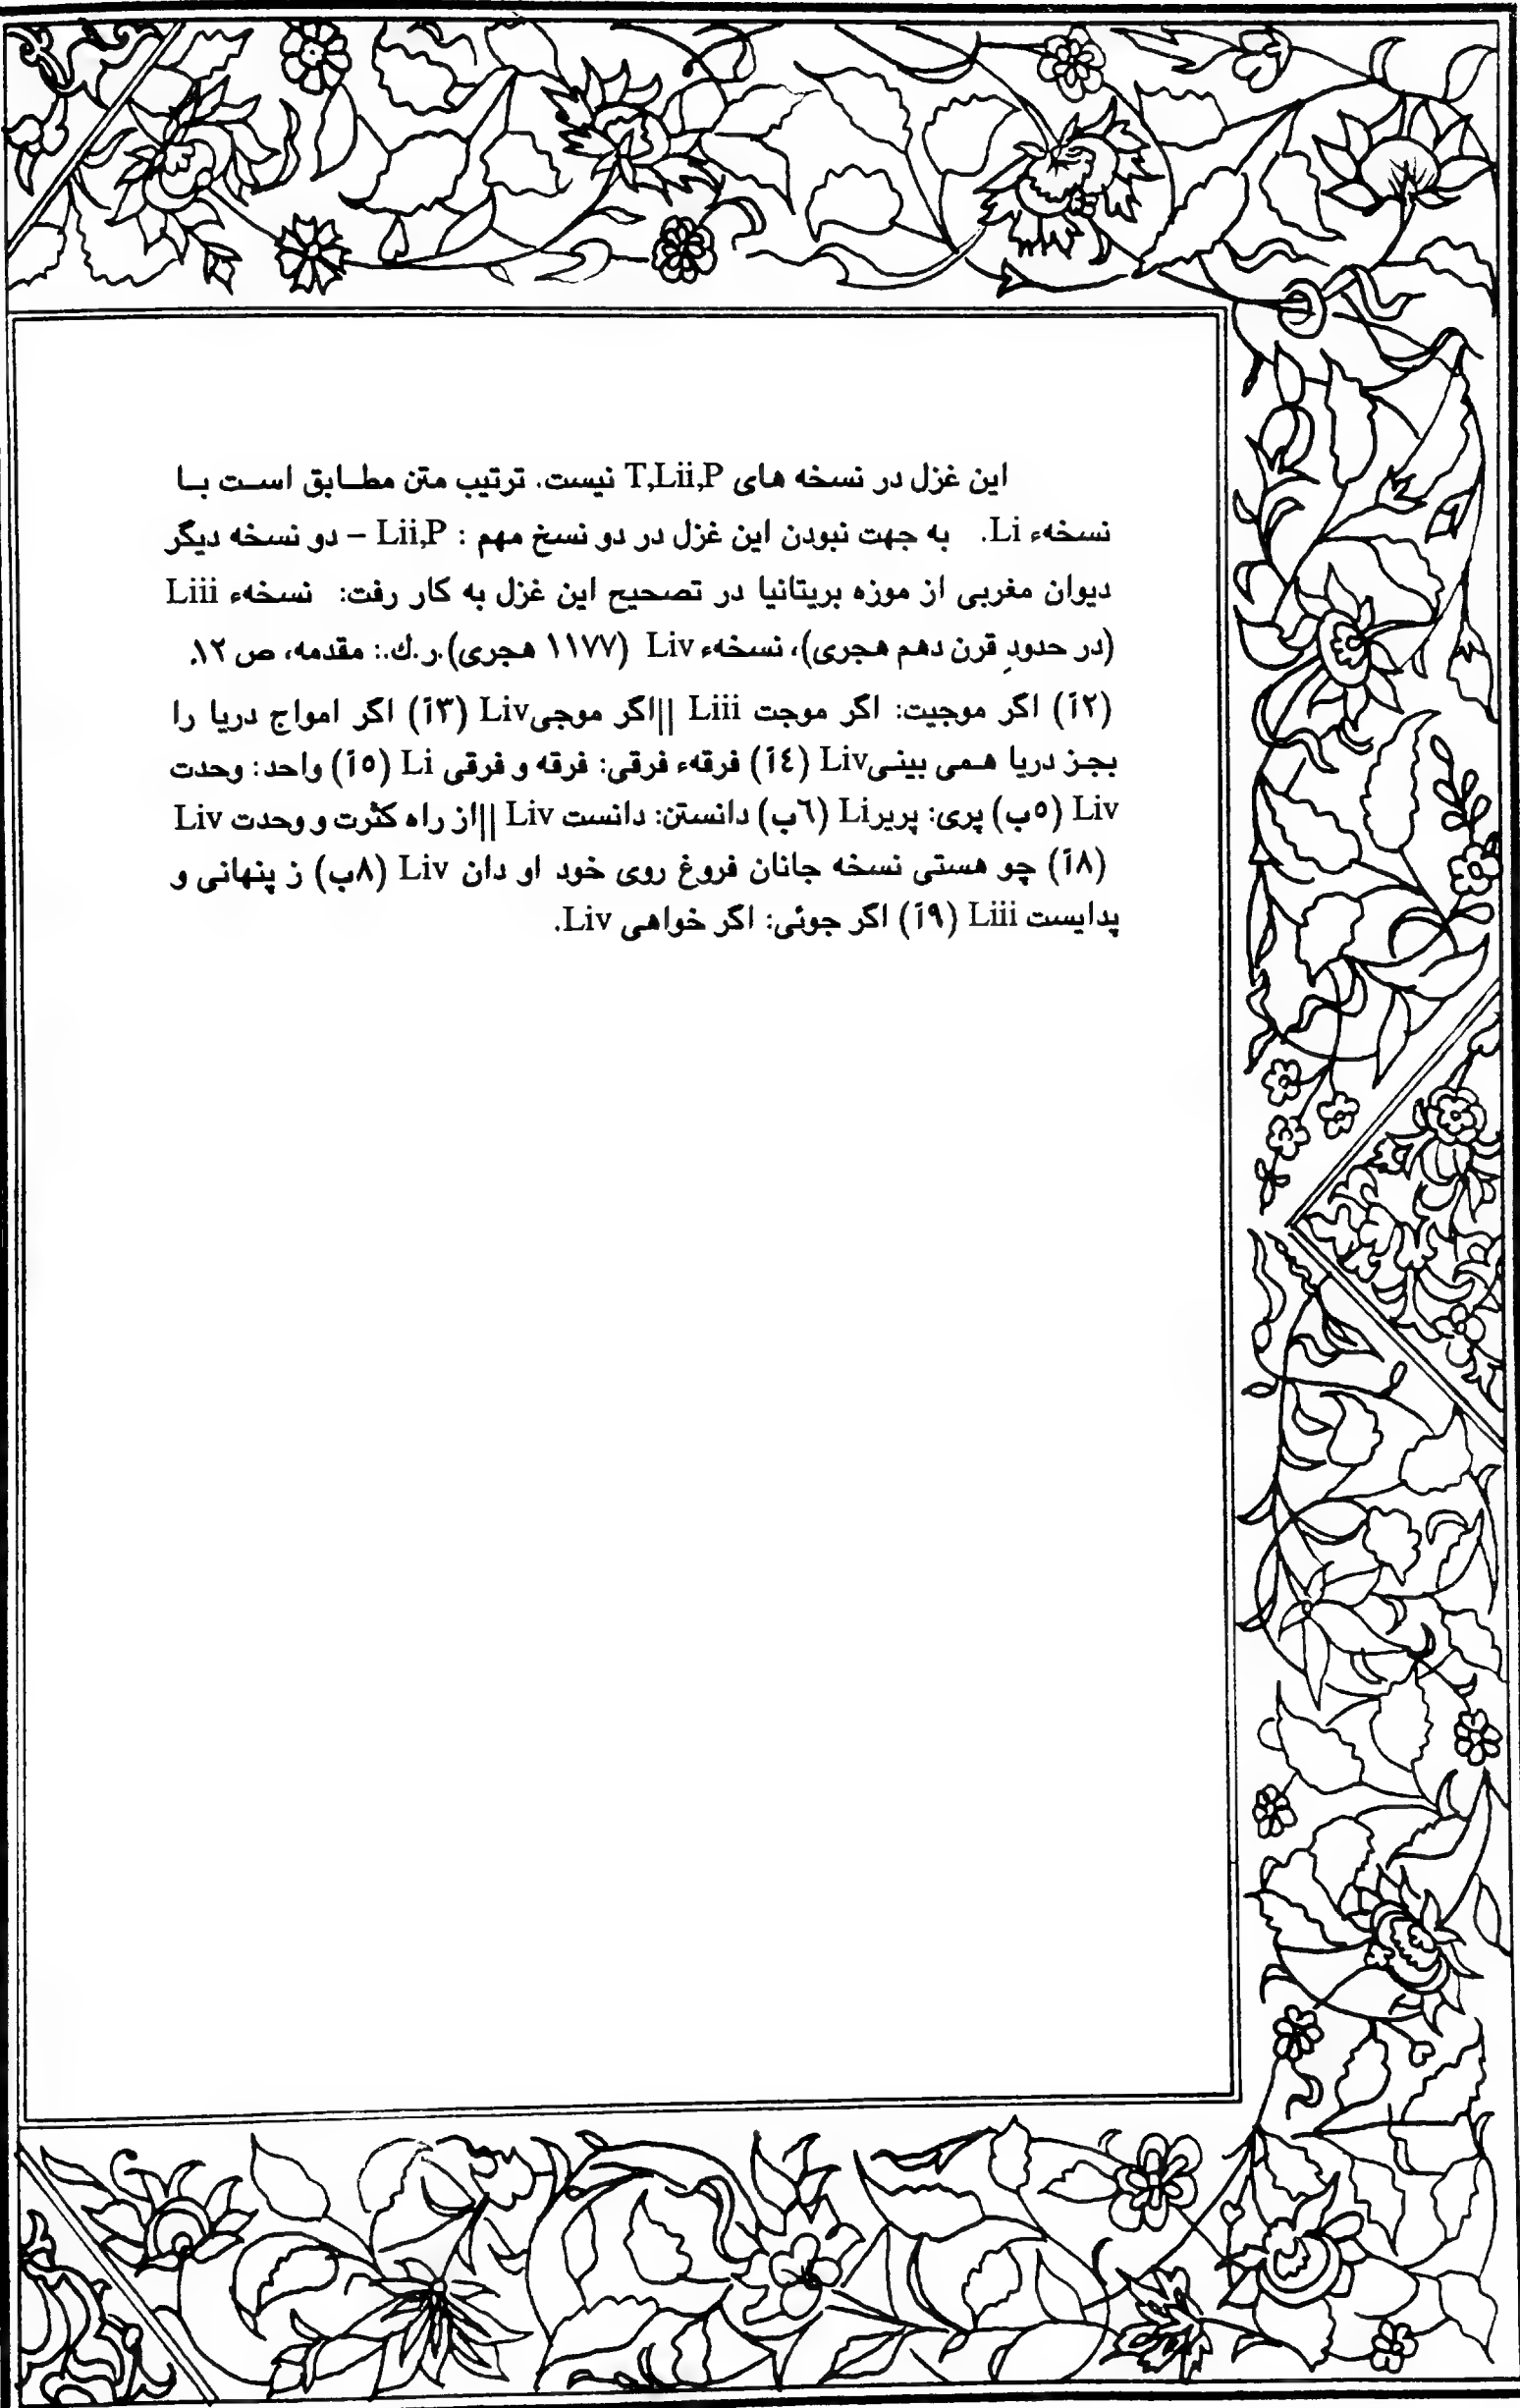 این غزل در نسخه های T,Lii,P نیست. ترتیب متن مطابق است با
نسخهء Li. به جهت نبودن این غزل در دو نسخ مهم : Lii,P – دو نسخه دیگر
دیوان مغربی از موزه بریتانیا در تصحیح این غزل به کار رفت: نسخهء Liii
(در حدودِ قرن دهم هجری)، نسخهء Liv (۱۱۷۷ هجری).ر.ك.: مقدمه، ص ۱۲.
(۲آ) اگر موجیت: اگر موجت Liii ||اگر موجی Liv (۳آ) اگر امواج دریا را
بجز دریا همی بینی Liv (٤آ) فرقهء فرقی: فرقه و فرقی Li (٥آ) واحد: وحدت
Liv (٥ب) پری: پریر Li (٦ب) دانستن: دانست Liv ||از راه کثرت و وحدت Liv
(۸آ) چو هستی نسخه جانان فروغ روی خود او دان Liv (۸ب) ز پنهانی و
پدایست Liii (۹آ) اگر جوئی: اگر خواهی Liv.